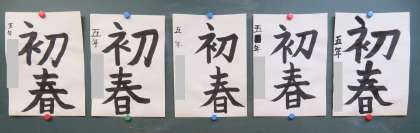 五年
初春
五年
初春
五年
初春
五年
初春
五年
初春